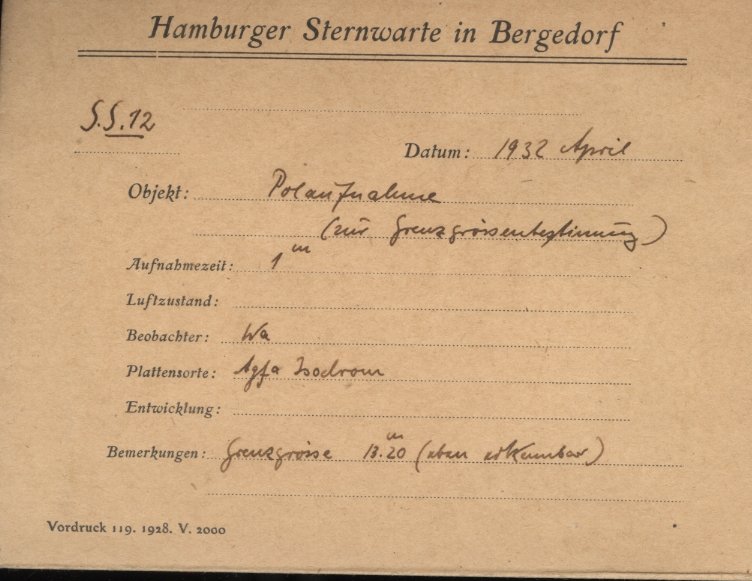 Hamburger Sternwarte in Bergedorf
S.S.12
Datum: 1932 April
Objekt: Polaufnahme
(zur Grenzgrössenbestimmung)
Aufnahmezeit: 1ᵐ
Luftzustand:
Beobachter: Wa
Plattensorte: Agfa Isochrom
Entwicklung:
Bemerkungen: Grenzgrösse 13.ᵐ20 (eben erkennbar)
Vordruck 119. 1928. V. 2000